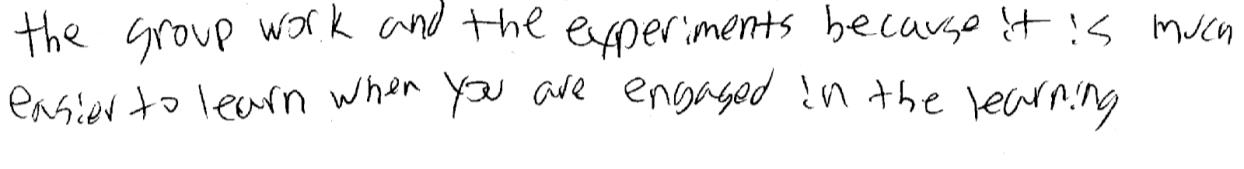 the group work and the experiments because it is much
easier to learn when you are engaged in the learning